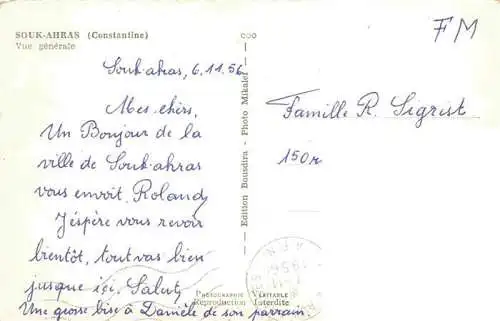 SOUK-AHRAS (Constantine)
Vue générale
Souk-ahras, 6.11.56
Mes chers,
Un Bonjour de la
ville de Souk-ahras
vous envoit, Roland,
J'éspère vous revoir
bientôt, tout vas bien
jusque ici. Salut,
Une grosse bise à Danièle de son parrain.
— Edition Bousdira - Photo Mikalef —
PHOTOGRAPHIE VÉRITABLE
Reproduction Interdite
FM
Famille R. Sigrist
1956